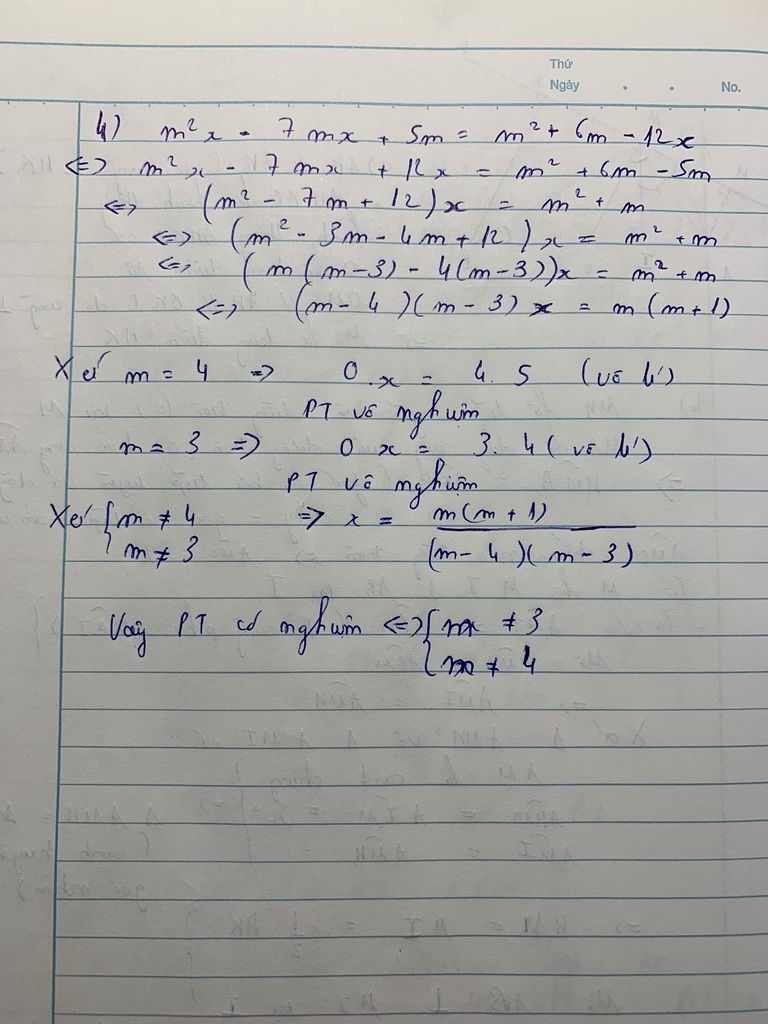 Thứ
Ngày . . No.
4) m²x - 7mx + 5m = m² + 6m - 12x
<=> m²x - 7mx + 12x = m² + 6m - 5m
<=> (m² - 7m + 12)x = m² + m
<=> (m² - 3m - 4m + 12)x = m² + m
<=> (m(m-3) - 4(m-3))x = m² + m
<=> (m-4)(m-3)x = m(m+1)
Xét m = 4 => 0.x = 4.5 (vô lí)
PT vô nghiệm
m = 3 => 0x = 3.4 (vô lí)
PT vô nghiệm
Xét { m ≠ 4 => x = m(m+1) / (m-4)(m-3)
m ≠ 3
Vậy PT có nghiệm <=> { m ≠ 3
m ≠ 4